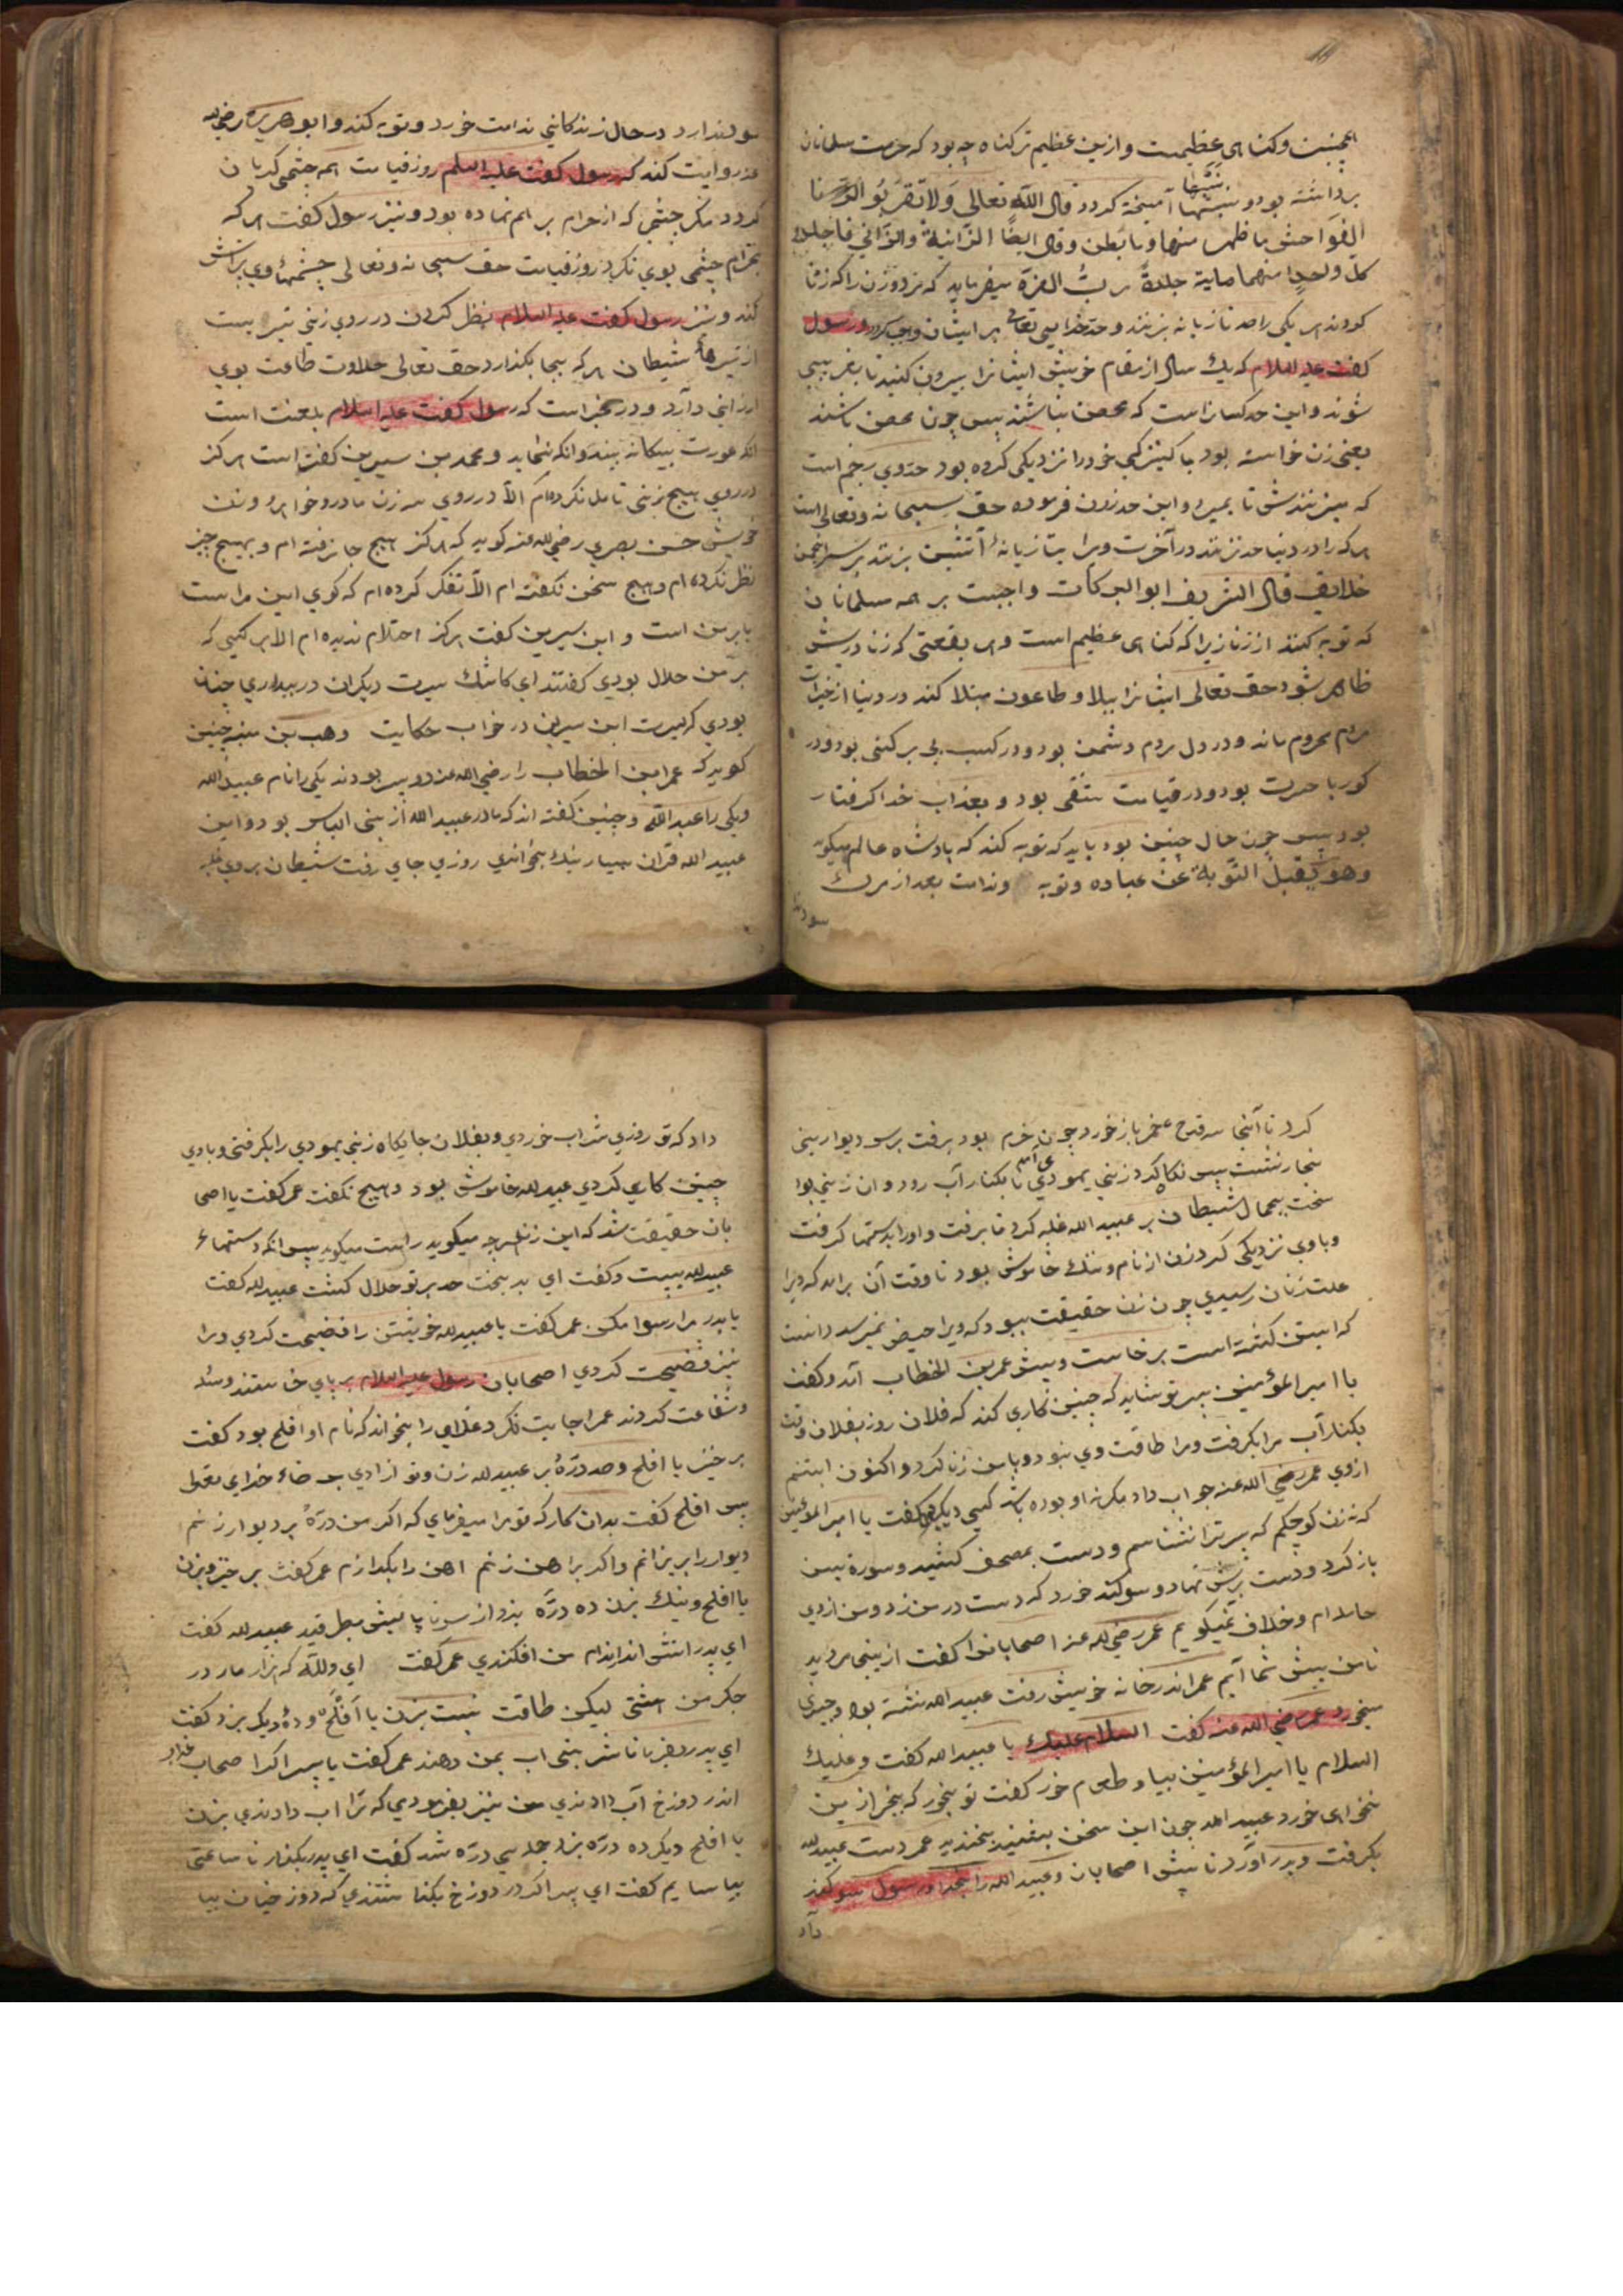 همچنین و کناهی عظیمست و ازین عظیم تر کناه چه بود که حرمت مسلمانان
برداشته بود و نسبها آمیخته کردد قال الله تعالی ولا تقربو الزنا
الفواحش ما ظهر منها و ما بطن و قال ایضا الزانیة والزانی فاجلدوا
کل واحد منهما مایة جلدة رب العزة میفرماید که مرد و زن را که زنا
کردند هر یکی را صد تازیانه بزنند و حد خدایی تعالی بر ایشان واجب کردد و رسول
کفت علیه السلام که یک سال از مقام خویش ایشانرا بیرون کنید تا بغریبی
شوند و این حد کسانراست که محصن نباشند پس چون محصن باشند
یعنی زن خواسته بود یا کنیزکی خود را نزدیکی کرده بود حد وی رجم است
که میزنندش تا بمیرد و این حد زدن فرموده حق سبحانه و تعالی است
هر که را در دنیا حد نزنند در آخرت ویرا بتازیانهٔ آتشین بزنند بر سر انجمن
خلایق قال الشریف ابو البرکات واجبست بر همه مسلمانان
که توبه کنند از زنا زیرا که کناهی عظیم است و هر بقعتی که زنا درش
ظاهر شود حق تعالی ایشانرا ببلا و طاعون مبتلا کند و در دنیا از خیرات
مردم محروم ماند و در دل مردم دشمن بود و در کسب بی برکتی بود و در
کور با حسرت بود و در قیامت شقی بود و بعذاب خدا کرفتار
بود پس چون حال چنین بود باید که توبه کند که پادشاه عالم میکوید
وهو یقبل التوبة عن عباده و توبه و ندامت بعد از مرک
سود ند
سود ندارد در حال زندکانی ندامت خورد و توبه کند و ابو هریره رضی الله
عنه روایت کند که رسول کفت علیه السلم روز قیامت همه چشمی کریان
کردد مکر چشمی که از حرام بر هم نهاده بود و نیز رسول کفت هر که
بحرام چشمی بوی نکرد روز قیامت حق سبحانه و تعالی چشمهاء وی پر آتش
کند و نیز رسول کفت علیه السلام نظر کردن در روی زنی تیریست
از تیرهاء شیطان هر که بیجا بکذارد حق تعالی حلاوت طاعت بوی
ارزانی دارد و در خبر است که رسول کفت علیه السلام بلعنت است
انکه عورت بیکانه بیند و انکه بنماید و محمد بن سیرین کفته است هرکز
در روی هیچ زنی تامل نکرده ام الا در روی سه زن مادر و خواهر و زن
خویش حسن بصری رضی الله عنه کوید که هرکز هیچ جا نرفته ام و بهیچ چیز
نظر نکرده ام و هیچ سخن نکفته ام الا تفکر کرده ام که کوی این مراست
یا بر من است و ابن سیرین کفت هرکز احتلام ندیده ام الا بر کسی که
بر من حلال بودی کفتند ای کاشک سیرت دیکران در بیداری چنان
بودی که سیرت ابن سیرین در خواب حکایت وهب بن منبه چنین
کوید که عمر ابن الخطاب را رضی الله عنه دو پسر بودند یکی را نام عبید الله
و یکی را عبد الله و چنین کفته اند که مادر عبید الله از بنی الیاس بود و این
عبید الله قرآن بسیار نیک بخواندی روزی جای رفت شیطان بروی غلبه
کرد تا آنجا سه قدح خمر باز خورد چون خرم بود برفت بر سر دیوار بنی
نجار نشست پس نکاه کرد زنی یهودی می آمد تا بکنار آب رود و ان زنی بود
سخت بجمال شیطان بر عبید الله غلبه کرد تا برفت و او را بدستها کرفت
و باوی نزدیکی کرد زن از نام و ننک خاموش بود تا وقت آن برآمد که ویرا
علت زنان رسیدی چون زن حقیقت ببود که ویرا حیض نمیرسد دانست
که ابستن کشته است برخاست و پیش عمر بن الخطاب آمد و کفت
یا امیر المؤمنین پسر تو شاید که چنین کاری کند که فلان روز بفلان وقت
بکنار آب مرا بکرفت و مرا طاقت وی نبود و با من زنا کرد و اکنون ابستنم
ازوی عمر رضی الله عنه جواب داد مکر نه او بوده باشد کسی دیکر بود کفت یا امیر المؤمنین
که نه زن کوچکم که پسر ترا نشناسم و دست بمصحف کشید و سورة یس
باز کرد و دست برش نهاد و سوکند خورد که دست در من زد و من ازوی
حامله ام و خلاف نمیکویم عمر رضی الله عنه اصحابانرا کفت از ینجا مروید
تا من پیش شما آیم عمر اندر خانه خویش رفت عبید الله نشسته بود و چیزی
میخورد عمر رضی الله عنه کفت السلام علیک یا عبید الله کفت و علیک
السلام یا امیر المؤمنین بیا و طعام خور کفت تو بخور که بخر ازین
نخواهی خورد عبید الله چون این سخن بشنید بخندید عمر دست عبید الله
بکرفت و بدر آورد تا پیش اصحابان و عبید الله را بخدا و رسول سوکند
داد
داد که تو روزی شراب خوردی و بفلان جایکاه زنی یهودی را بکرفتی و باوی
چنین کاری کردی عبید الله خاموش بود و هیچ نکفت عمر کفت یا اصحا
بان حقیقت شد که این زن هرچه میکوید راست میکوید پس انکه دستهاء
عبید الله ببست و کفت ای بدبخت حد بر تو حلال کشت عبید الله کفت
یا پدر مرا رسوا مکن عمر کفت یا عبید الله خویشتن را فضیحت کردی و مرا
نیز فضیحت کردی اصحابان رسول علیه السلام بر پای خاستند و
و شفاعت کردند عمر اجابت نکرد غلامی را بخواند که نام او افلح بود کفت
برخیز یا افلح و صد درّهٔ بر عبید الله زن و تو ازادی برضاء خدای تعالی
پس افلح کفت بدان کار که تو مرا میفرمای که اکر من درّهٔ بر دیوار زنم
دیوار را بریزانم و اکر بر اهن زنم اهن را بکدازم عمر کفت برخیز و بزن
یا افلح و نیک بزن ده درّه بزد از سر تا پایش بطرقید عبید الله کفت
ای پدر اتش اندر اندام من افکندی عمر کفت ای والله که هزار مار در
جکر من هشتی لیکن طاقت نیست بزن یا افلح و ده دیکر بزد کفت
ای پدر بفرما تا شربتی اب بمن دهند عمر کفت یا پسر اکر اصحاب عذاب
اندر دوزخ آب دادندی من نیز بفرمودی که ترا اب دادندی بزن
یا افلح دیکر ده درّه بزد جمله سی درّه شد کفت ای پدر بکذار تا ساعتی
بیاسایم کفت ای پسر اکر در دوزخ بکذاشتندی که دوزخیان بیا